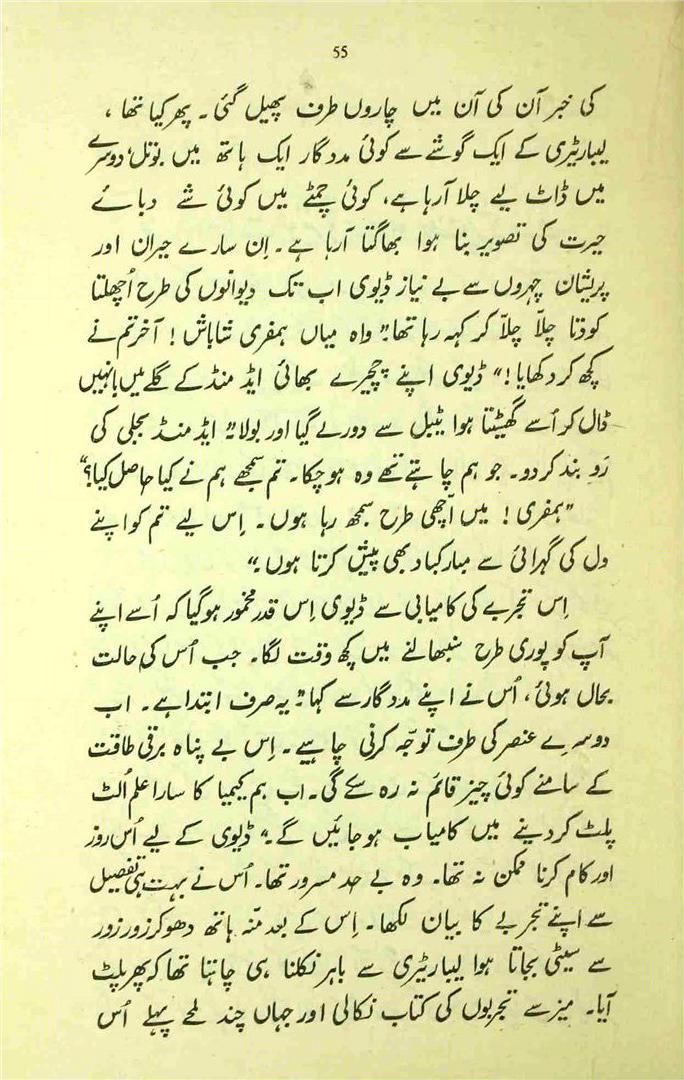 55
کی خبر آن کی آن میں چاروں طرف پھیل گئی۔ پھر کیا تھا،
لیبارٹیری کے ایک گوشے سے کوئی مددگار ایک ہاتھ میں بوتل، دوسرے
میں ڈاٹ لیے چلا آرہا ہے، کوئی چمٹے میں کوئی شے دبائے
حیرت کی تصویر بنا ہوا بھاگتا آرہا ہے۔ اِن سارے حیران اور
پریشان چہروں سے بے نیاز ڈیوی اب تک دیوانوں کی طرح اُچھلتا
کودتا چلّا چلّا کر کہہ رہا تھا: ”واہ میاں ہمفری شاباش! آخر تم نے
کچھ کر دکھایا!“ ڈیوی اپنے چچیرے بھائی ایڈمنڈ کے گلے میں بانہیں
ڈال کر اُسے گھیٹتا ہوا ٹیبل سے دور لے گیا اور بولا: ”ایڈمنڈ بجلی کی
رَو بند کردو۔ جو ہم چاہتے تھے وہ ہوچکا۔ تم سمجھے ہم نے کیا حاصل کیا؟“
”ہمفری! میں اچّھی طرح سمجھ رہا ہوں۔ اِس لیے تم کو اپنے
دل کی گہرائی سے مبارکباد بھی پیش کرتا ہوں۔“
اِس تجربے کی کامیابی سے ڈیوی اِس قدر مخمور ہوگیا کہ اُسے اپنے
آپ کو پوری طرح سنبھالنے میں کچھ وقت لگا۔ جب اُس کی حالت
بحال ہوئی، اُس نے اپنے مددگار سے کہا: ”یہ صرف ابتدا ہے۔ اب
دوسرے عنصر کی طرف توجّہ کرنی چاہیے۔ اِس بے پناہ برقی طاقت
کے سامنے کوئی چیز قائم نہ رہ سکے گی۔ اب ہم کیمیا کا سارا علم اُلٹ
پلٹ کر دینے میں کامیاب ہوجائیں گے۔“ ڈیوی کے لیے اُس روز
اور کام کرنا ممکن نہ تھا۔ وہ بے حد مسرور تھا۔ اُس نے بہت ہی تفصیل
سے اپنے تجربے کا بیان لکھا۔ اِس کے بعد منّہ ہاتھ دھو کر زور زور
سے سیٹی بجاتا ہوا لیبارٹیری سے باہر نکلنا ہی چاہتا تھا کہ پھر پلٹ
آیا۔ میز سے تجربوں کی کتاب نکالی اور جہاں چند لمحے پہلے اُس